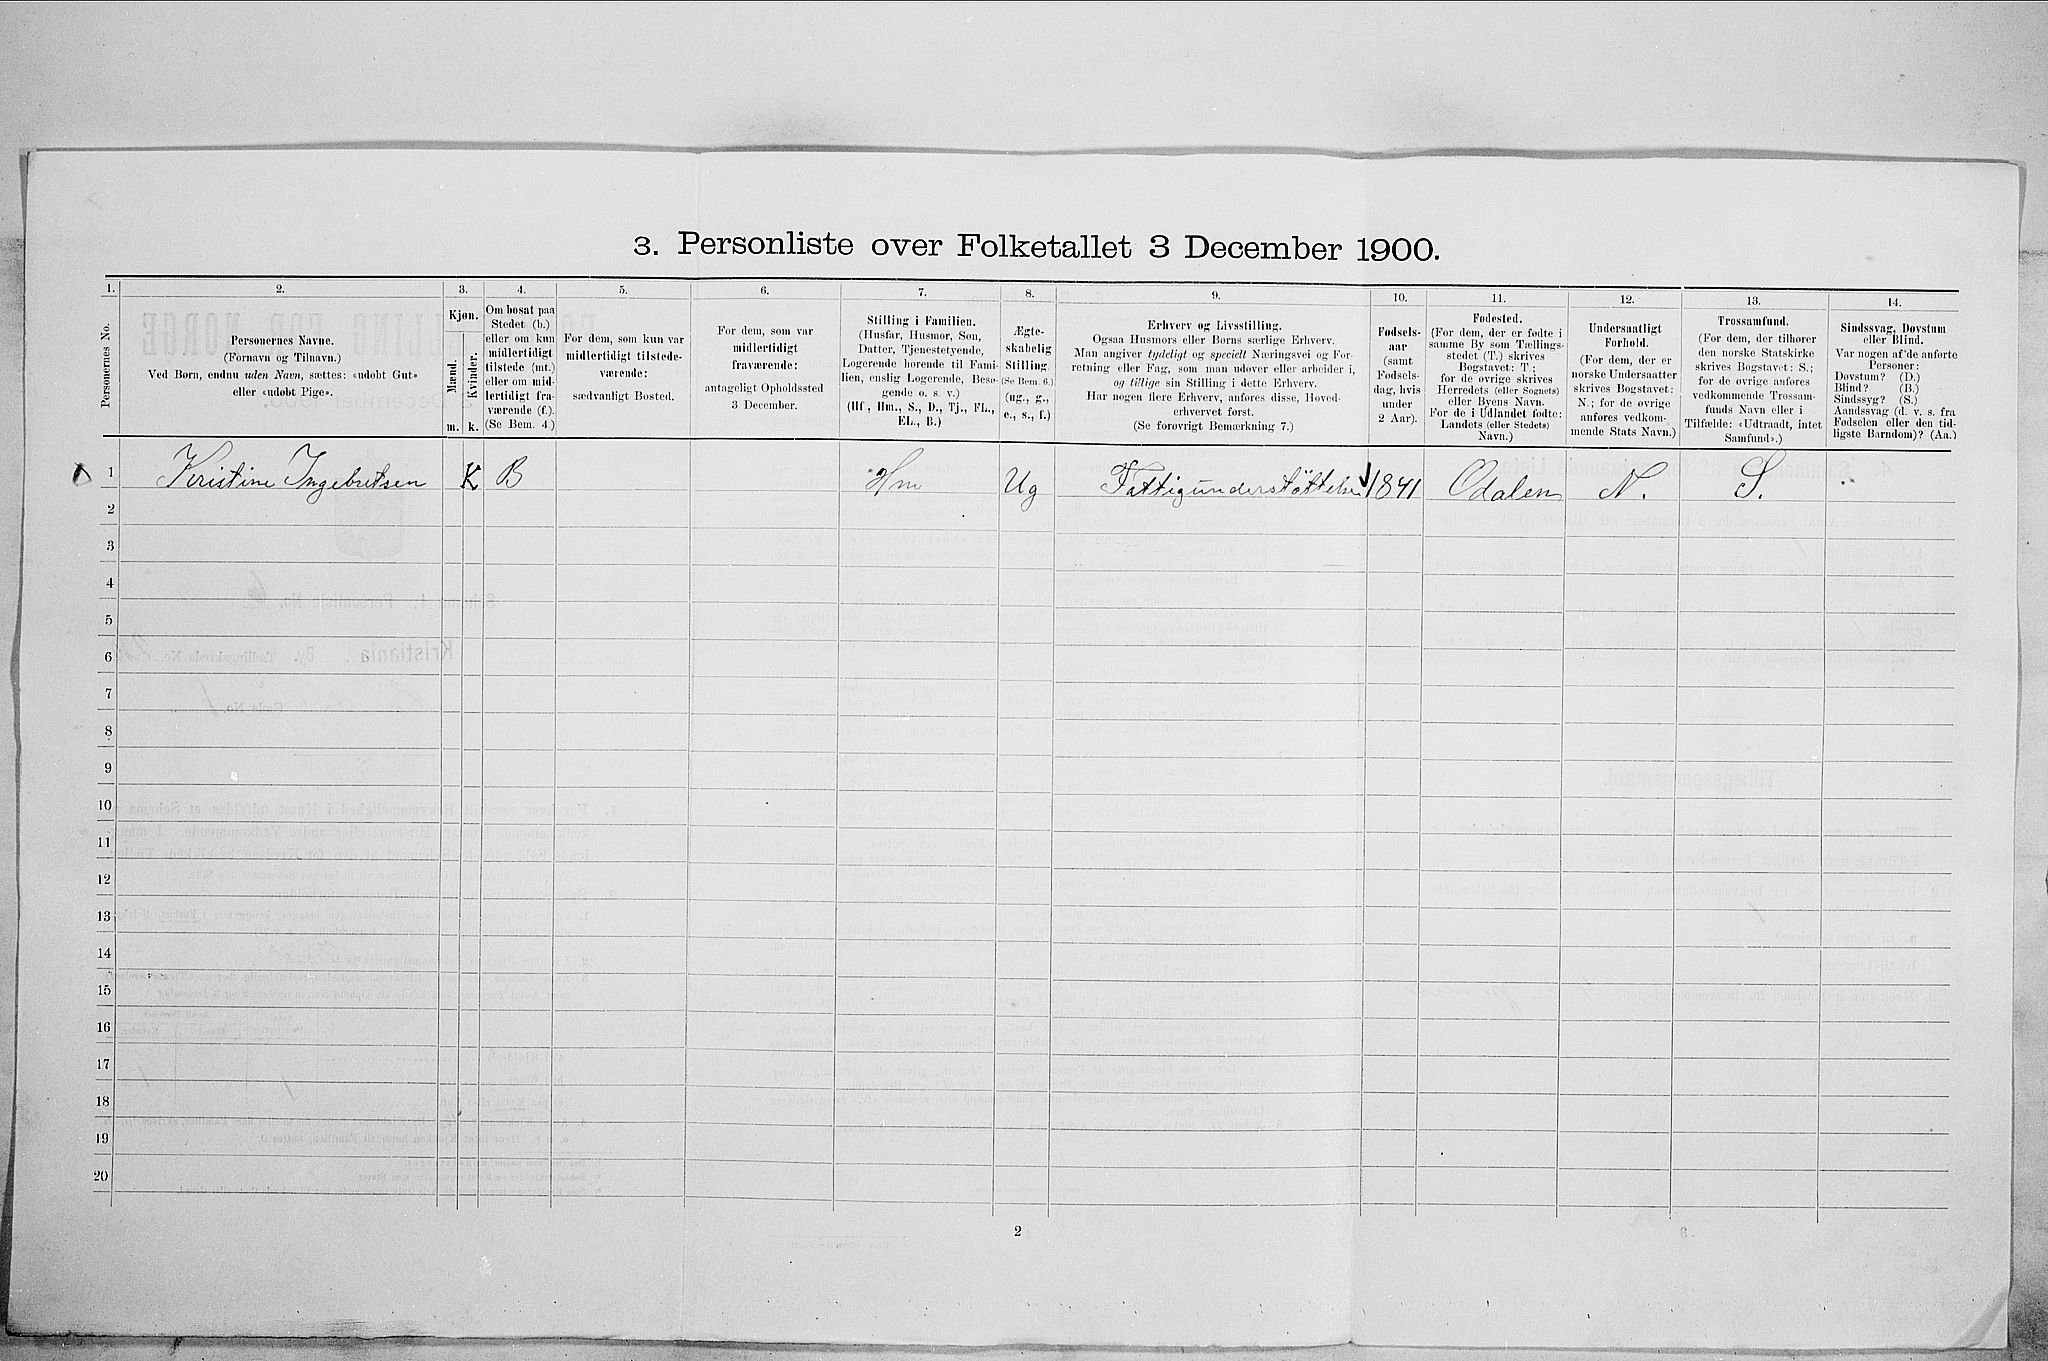 3. Personliste over Folketallet 3 December 1900.
1.
2.
3.
4.
5.
6.
7.
8.
9.
10.
11.
12.
13.
14.
Personernes No.
Personernes Navne.
(Fornavn og Tilnavn.)
Ved Børn, endnu uden Navn, sættes: «udøbt Gut»
eller «udøbt Pige».
Kjøn.
Mænd.
Kvinder.
m.
k.
Om bosat paa
Stedet (b.)
eller om kun
midlertidigt
tilstede (mt.)
eller om mid-
lertidigt fra-
værende (f.).
(Se Bem. 4)
For dem, som kun var
midlertidigt tilstede-
værende:
sædvanligt Bosted.
For dem, som var
midlertidigt
fraværende:
antageligt Opholdssted
3 December.
Stilling i Familien.
(Husfar, Husmor, Søn,
Datter, Tjenestetyende,
Logerende hørende til Fami-
lien, enslig Logerende, Besø-
gende o. s. v.)
(Hf., Hm., S., D., Tj., FL.,
EL., B.)
Ægte-
skabelig
Stilling.
(Se Bem. 6.)
(ug., g.,
e., s., f.)
Erhverv og Livsstilling.
Ogsaa Husmors eller Børns særlige Erhverv.
Man angiver tydeligt og specielt Næringsvei og For-
retning eller Fag, som man udøver eller arbeider i,
og tillige sin Stilling i dette Erhverv.
Har nogen flere Erhverv, anføres disse, Hoved-
erhvervet først.
(Se forøvrigt Bemærkning 7.)
Fødsels-
aar
(samt
Fødsels-
dag, hvis
under
2 Aar).
Fødested.
(For dem, der er fødte i
samme By som Tællings-
stedet (T.) skrives
Bogstavet: T.;
for de øvrige skrives
Herredets (eller Sognets)
eller Byens Navn.
For de i Udlandet fødte:
Landets (eller Stedets)
Navn.)
Undersaatligt
Forhold.
(For dem, der er
norske Undersaatter
skrives Bogstavet:
N.; for de øvrige
anføres vedkom-
mende Stats Navn.)
Trossamfund.
(For dem, der tilhører
den norske Statskirke
skrives Bogstavet: S.;
for de øvrige anføres
vedkommende Trossam-
funds Navn eller i
Tilfælde: «Udtraadt, intet
Samfund».)
Sindssvag, Døvstum
eller Blind.
Var nogen af de anførte
Personer:
Døvstum? (D.)
Blind? (B.)
Sindssyg? (S.)
Aandssvag (d. v. s. fra
Fødselen eller den tid-
ligste Barndom)? (Aa.)
1 Kristine Ingebretsen K B Hm Ug Fattigunderstøttelse 1841 Odalen N. S.
2
3
4
5
6
7
8
9
10
11
12
13
14
15
16
17
18
19
20
2